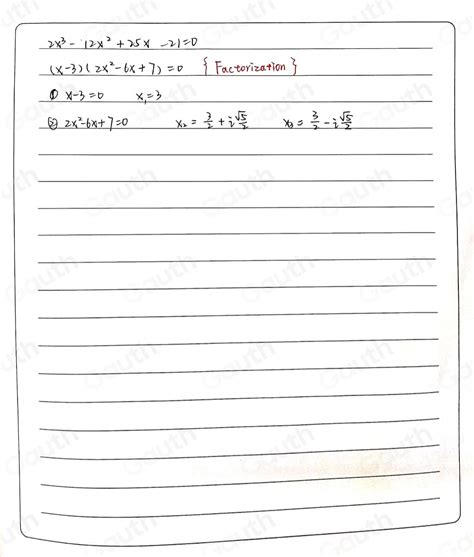 2x³ - 12x² + 25x - 21 = 0
(x-3)(2x² - 6x + 7) = 0 { Factorization }
① x-3=0 x₁=3
② 2x²-6x+7=0 x₂ = 3/2 + i √5/2 x₃ = 3/2 - i √5/2
Gauth